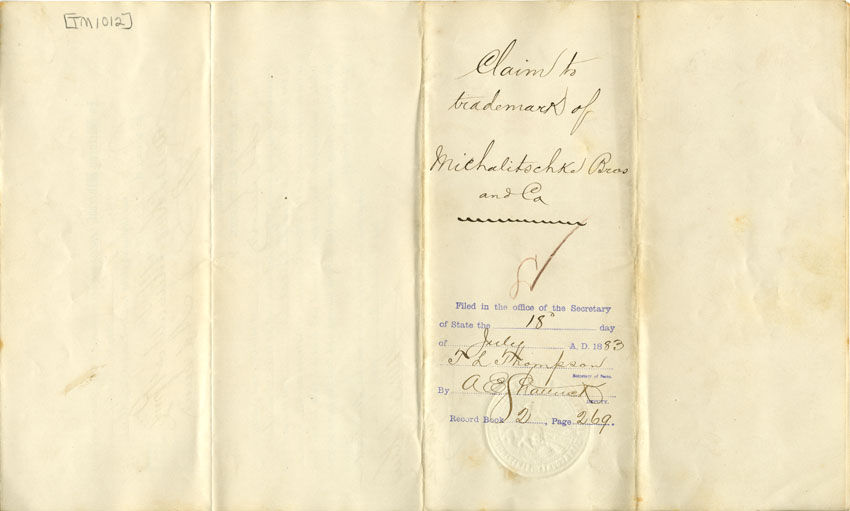 [TM1012]
Claim to
trademark of
Michalitschke Bros
and Co
Filed in the office of the Secretary
of State the 18 day
of July A. D. 1883
T L Thompson
Secretary of State.
By A E
DEPUTY.
Record Book 2, Page 269.